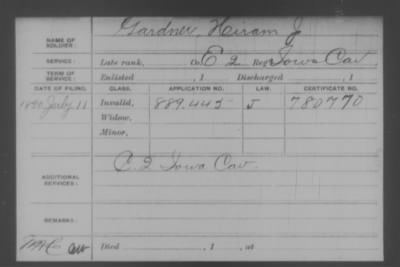 NAME OF SOLDIER: Gardner, Hiram J
SERVICE: Late rank, Co. E 2 Reg. Iowa Cav.
TERM OF SERVICE: Enlisted , 1 Discharged , 1
DATE OF FILING. CLASS. APPLICATION NO. LAW. CERTIFICATE NO.
1890 July 11 Invalid, 889.445 J 780770
Widow,
Minor,
ADDITIONAL SERVICES: C. 2 Iowa Cav.
REMARKS:
Died , 1 , at